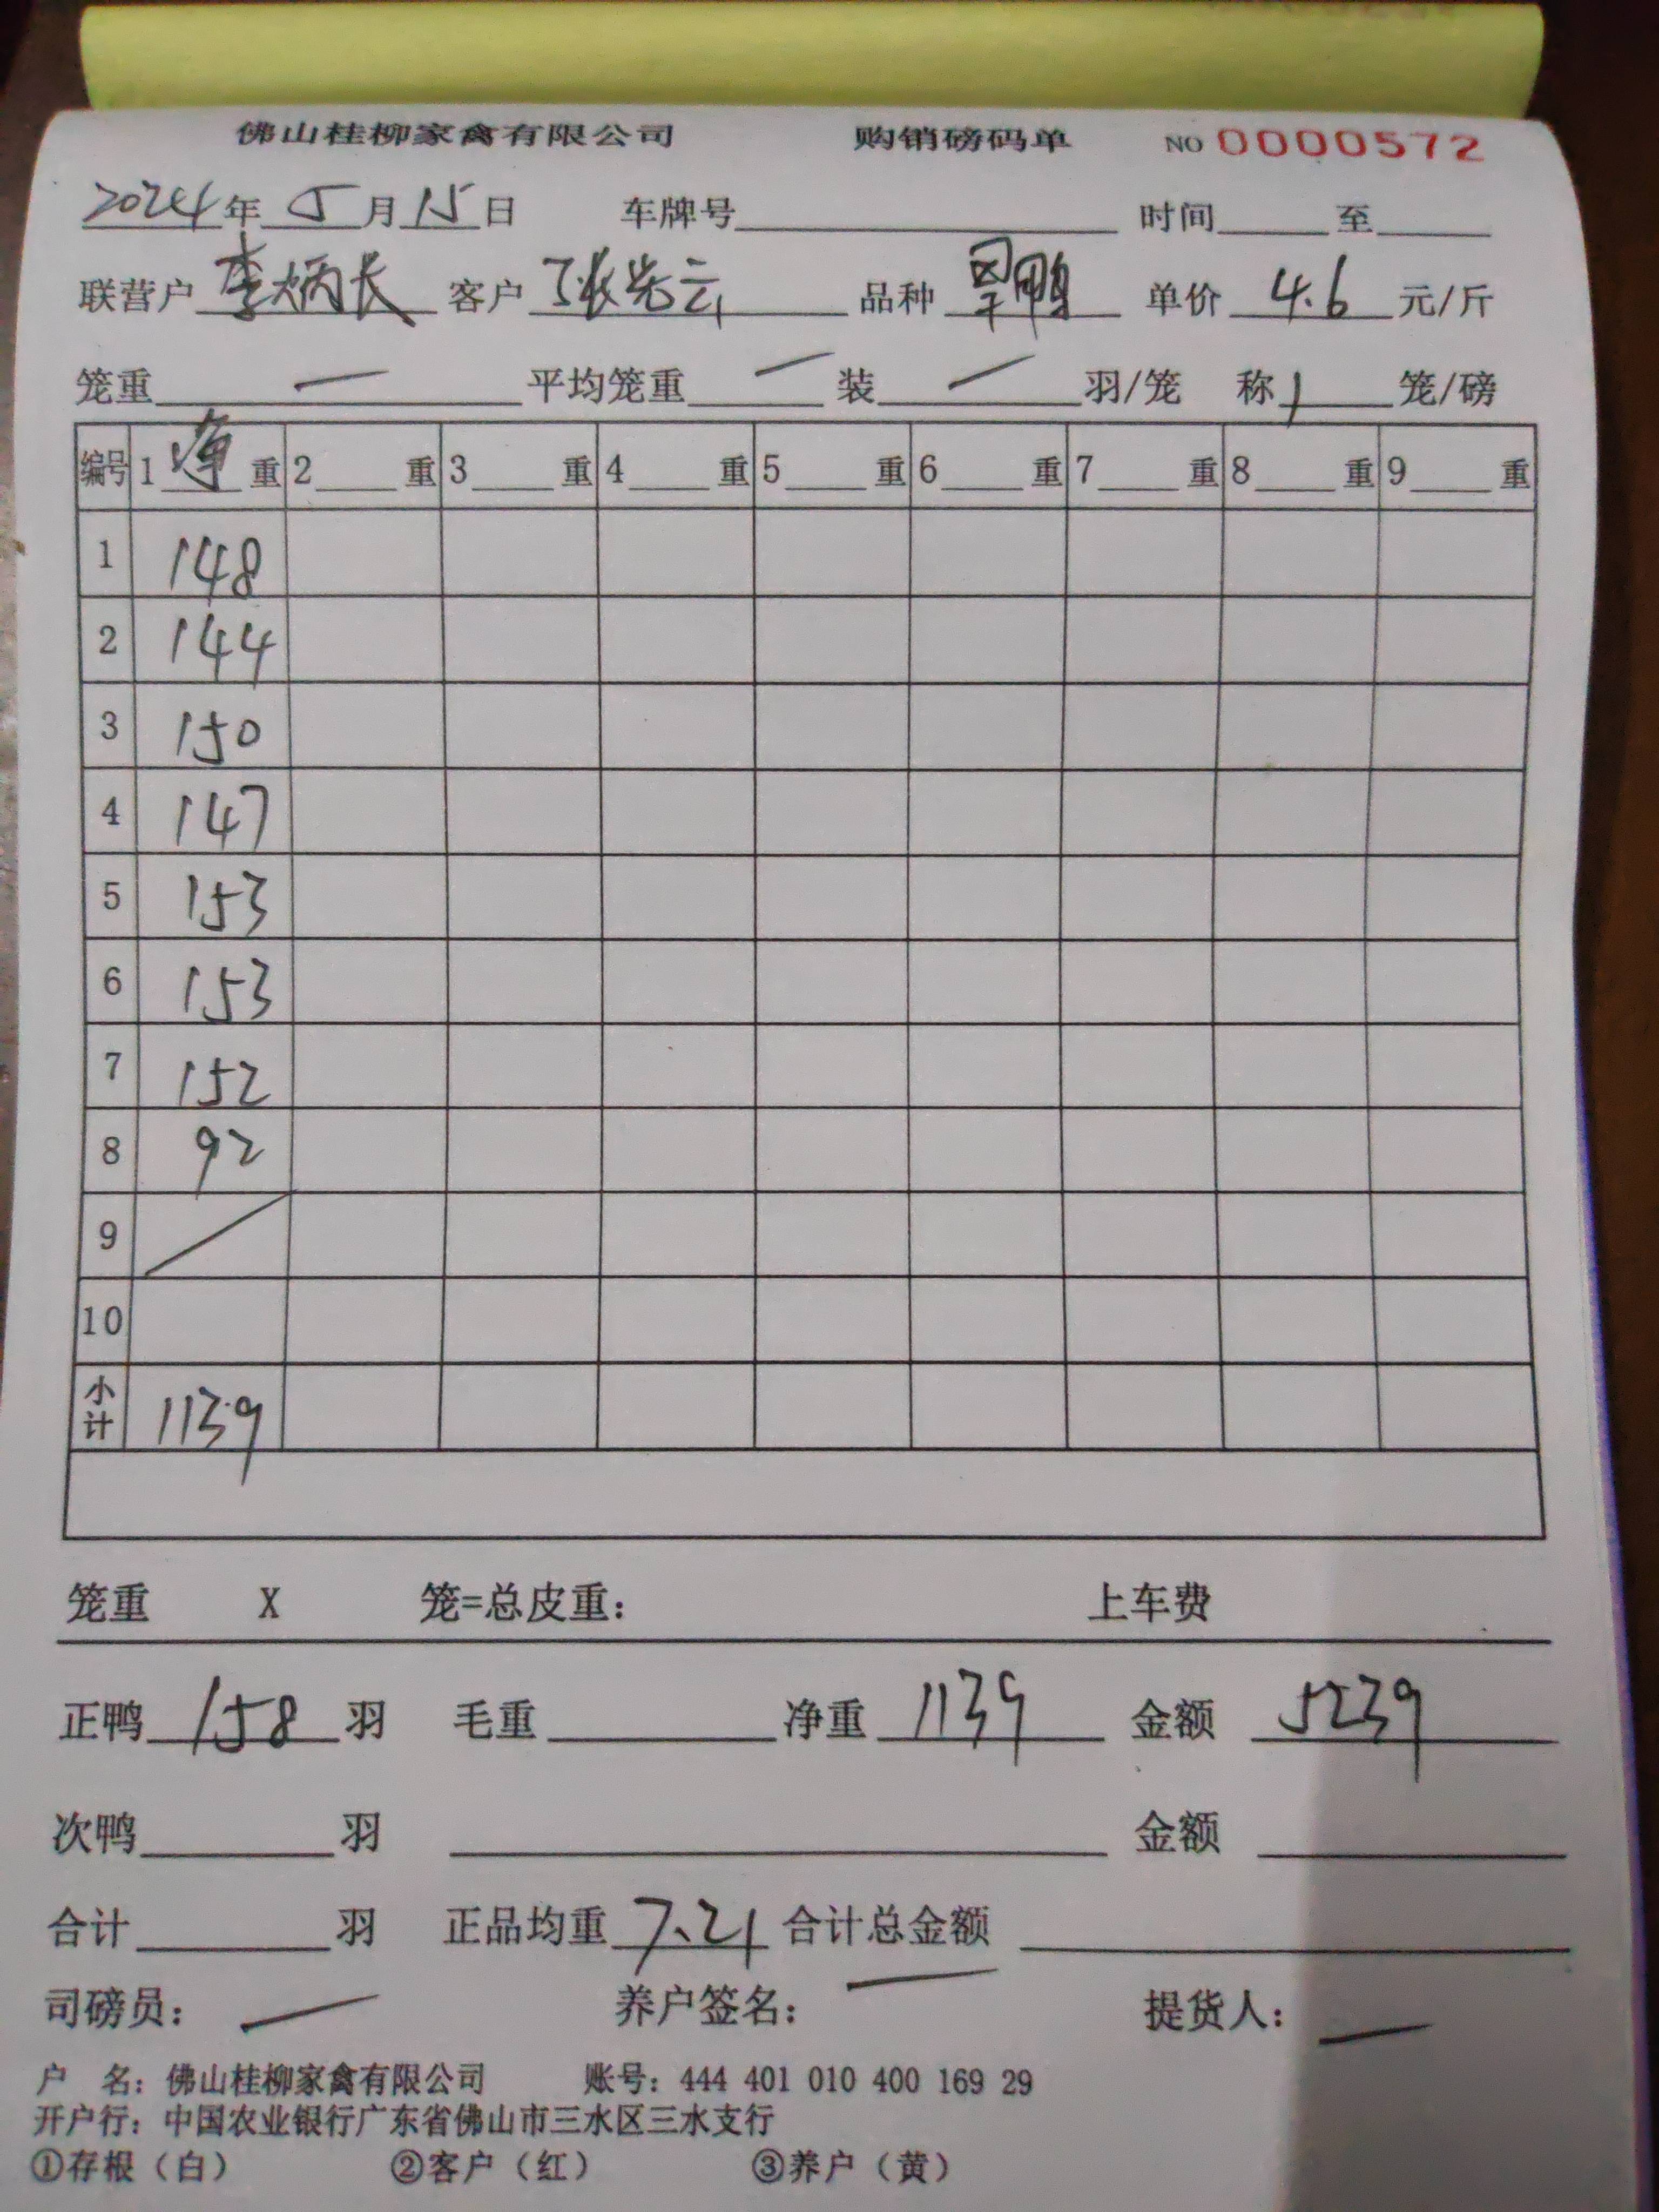 佛山桂柳家禽有限公司 购销磅码单 NO 0000572
2024年 5月15日 车牌号 时间 至
联营户 李炳长 客户 张先云 品种 旱鸭 单价 4.6 元/斤
笼重 — 平均笼重 — 装 — 羽/笼 称 1 笼/磅
编号 1 净 重 2 重 3 重 4 重 5 重 6 重 7 重 8 重 9 重
1 148
2 144
3 150
4 147
5 153
6 153
7 152
8 92
9 /
10
小计 1139
笼重 X 笼=总皮重: 上车费
正鸭 158 羽 毛重 净重 1139 金额 5239
次鸭 羽 金额
合计 羽 正品均重 7.21 合计总金额
司磅员: — 养户签名: — 提货人: —
户 名: 佛山桂柳家禽有限公司 账号: 444 401 010 400 169 29
开户行: 中国农业银行广东省佛山市三水区三水支行
①存根（白） ②客户（红） ③养户（黄）